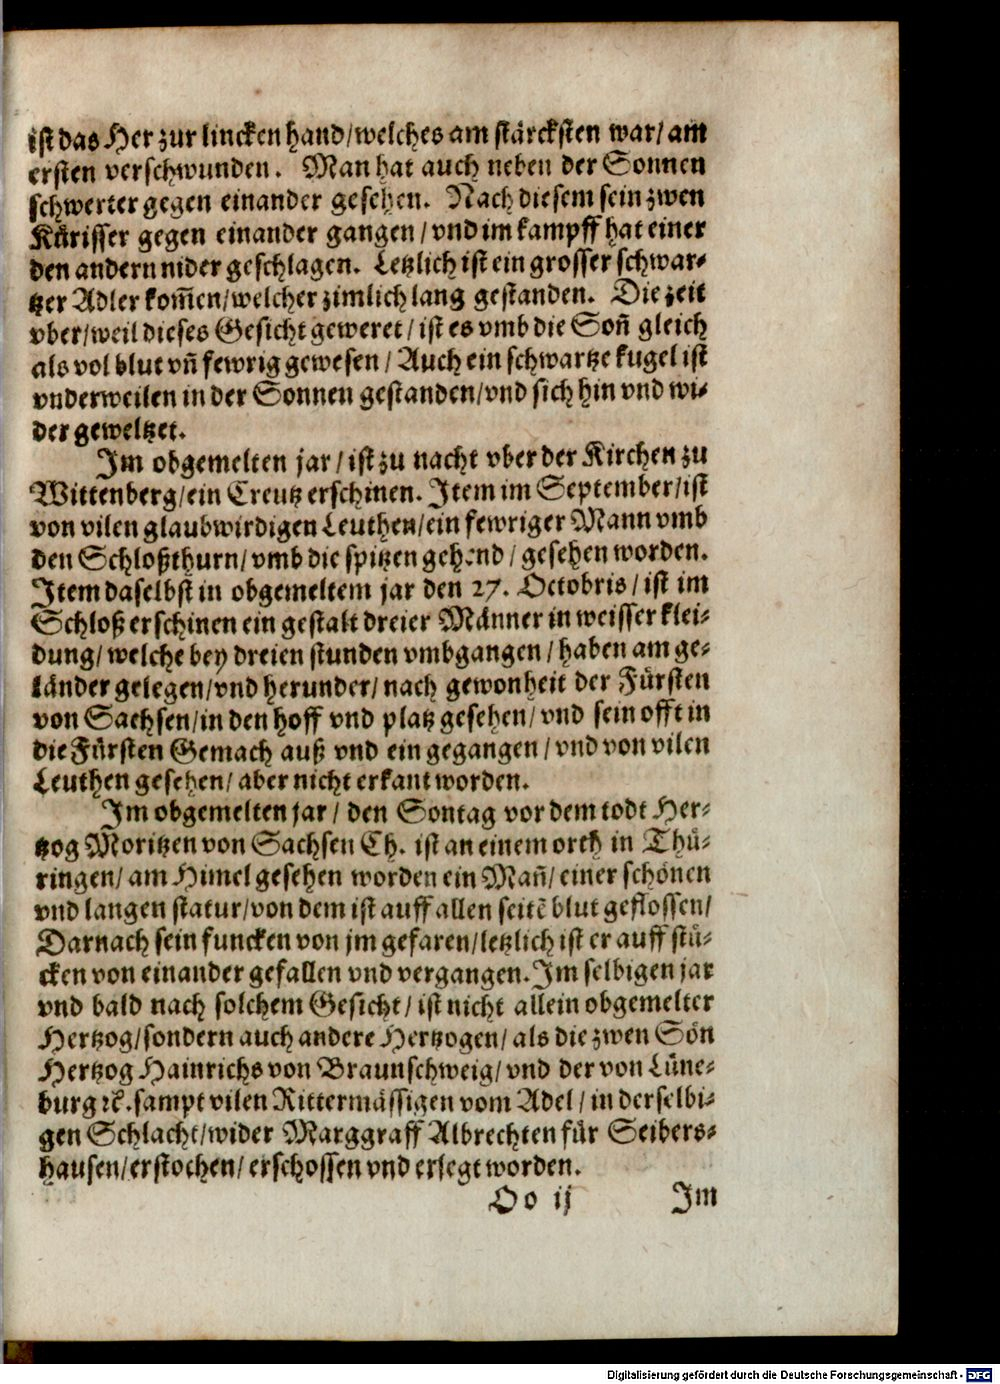 ist das Her zur lincken hand/welches am stärcksten war/ am
ersten verschwunden. Man hat auch neben der Sonnen
schwerter gegen einander gesehen. Nach diesem sein zwen
Kürisser gegen einander gangen/vnd im kampff hat einer
den andern nider geschlagen. Letzlich ist ein grosser schwar-
tzer Adler kom̃en/welcher zimlich lang gestanden. Die zeit
vber/weil dieses Gesicht geweret/ist es vmb die Son̄ gleich
als vol blut vn̄ fewrig gewesen/Auch ein schwartze kugel ist
vnderweilen in der Sonnen gestanden/vnd sich hin vnd wi-
der geweltzet.
Im obgemelten jar/ist zu nacht vber der Kirchen zu
Wittenberg/ein Creutz erschinen. Item im September/ist
von vilen glaubwirdigen Leuthen/ein fewriger Mann vmb
den Schloßthurn/vmb die spitzen gehend/gesehen worden.
Item daselbst in obgemeltem jar den 27. Octobris/ist im
Schloß erschinen ein gestalt dreier Männer in weisser klei-
dung/welche bey dreien stunden vmbgangen/haben am ge-
länder gelegen/vnd herunder/nach gewonheit der Fürsten
von Sachsen/in den hoff vnd platz gesehen/vnd sein offt in
die Fürsten Gemach auß vnd ein gegangen/vnd von vilen
Leuthen gesehen/aber nicht erkant worden.
Im obgemelten jar/ den Sontag vor dem todt Her-
tzog Moritzen von Sachsen Ch. ist an einem orth in Thü-
ringen/am Himel gesehen worden ein Man̄/einer schönen
vnd langen statur/von dem ist auff allen seitē blut geflossen/
Darnach sein funcken von jm gefaren/letzlich ist er auff stü-
cken von einander gefallen vnd vergangen. Im selbigen jar
vnd bald nach solchem Gesicht/ist nicht allein obgemelter
Hertzog/sondern auch andere Hertzogen/als die zwen Sön
Hertzog Hainrichs von Braunschweig/vnd der von Lüne-
burg ꝛc. sampt vilen Rittermässigen vom Adel/in derselbi-
gen Schlacht/wider Marggraff Albrechten für Seibers-
hausen/erstochen/erschossen vnd erlegt worden.
Oo ij Im
Digitalisierung gefördert durch die Deutsche Forschungsgemeinschaft - DFG